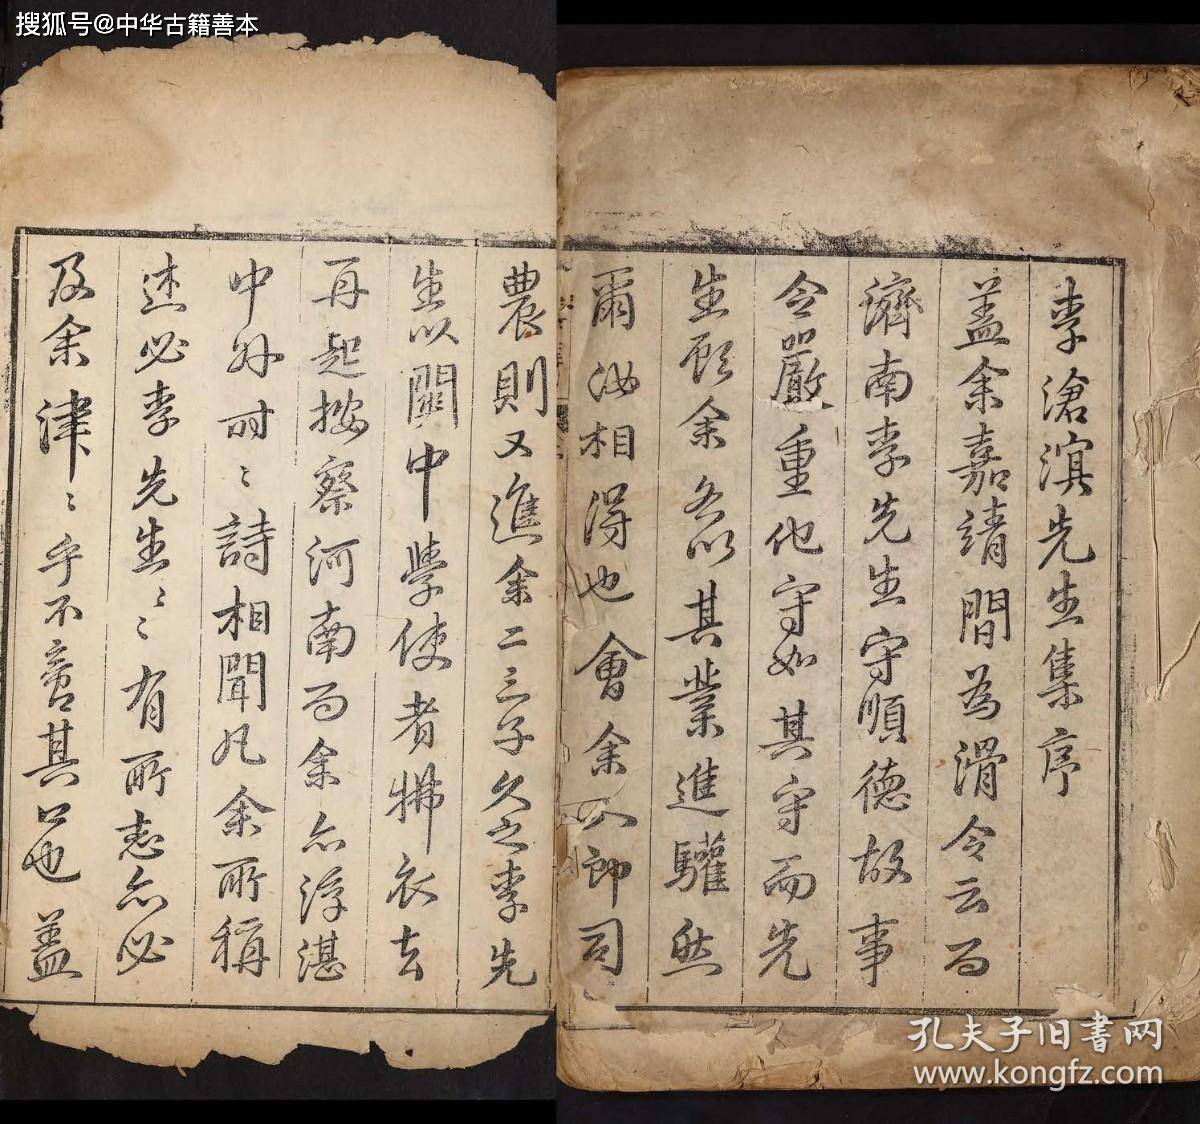 搜狐号@中华古籍善本
李滄溟先生集序
蓋余嘉靖間為滑令云而
濟南李先生守順德故事
令嚴重他守如其守而先
生顧余各以其業進驩然
爾汝相得也會余以郎司
農則又進余二三子久之李先
生以關中學使者拂衣去
再起按察河南而余亦浮湛
中外時〻詩相聞凡余所稱
述必李先生〻〻有所志亦必
及余津〻乎不啻其口也蓋
孔夫子旧书网
www.kongfz.com